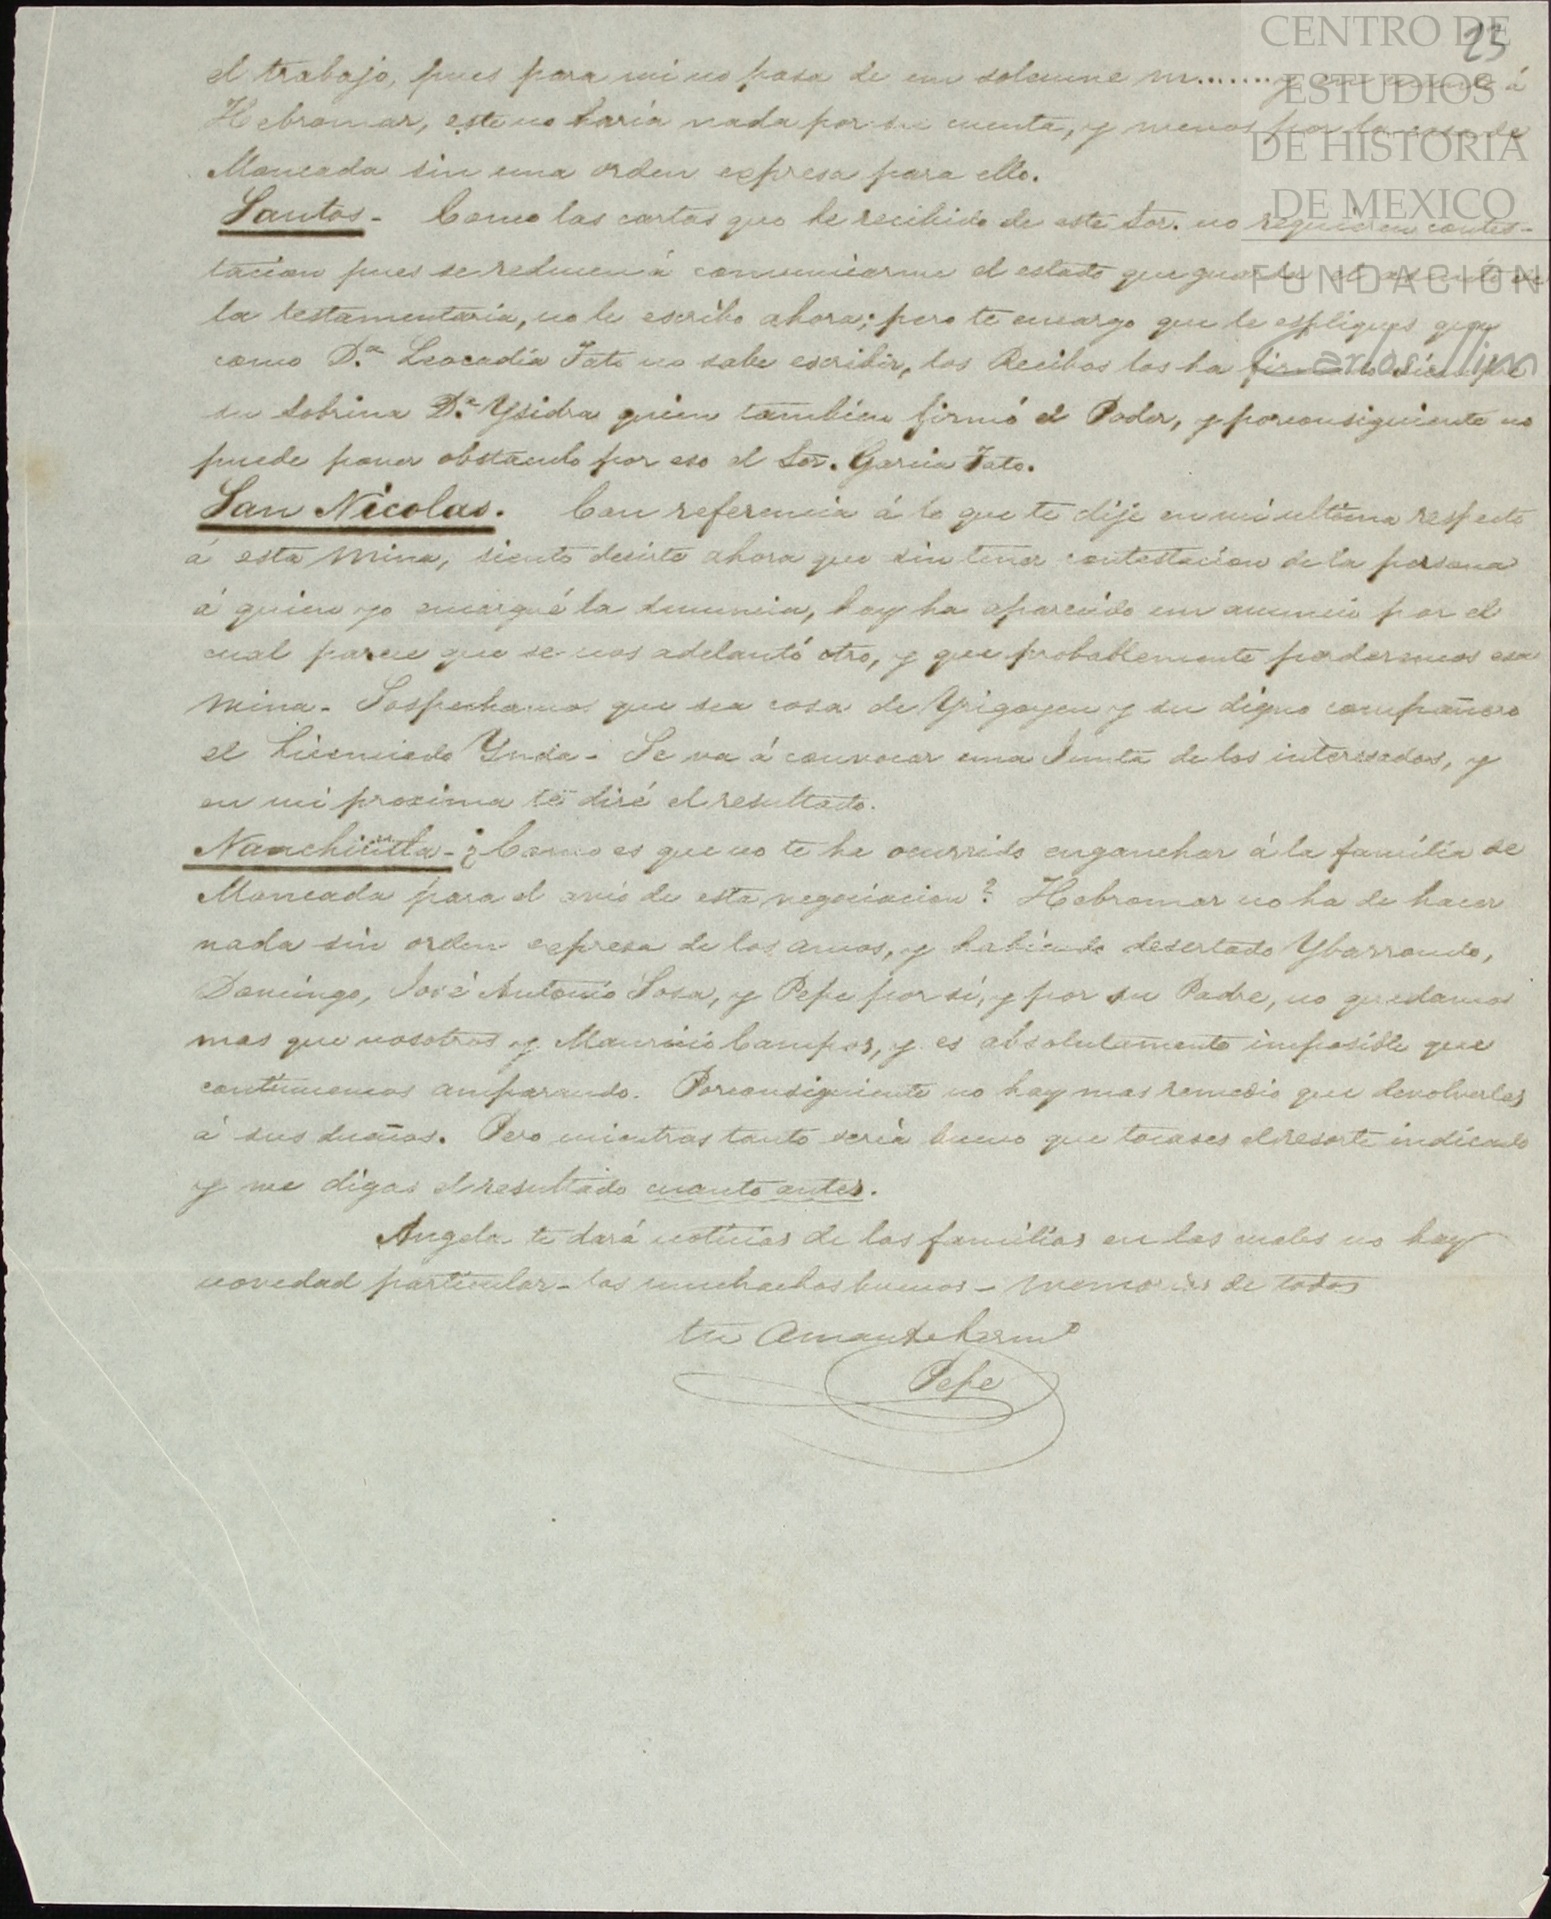 23
CENTRO DE
ESTUDIOS
DE HISTORIA
DE MEXICO
FUNDACIÓN
Carlos Slim
el trabajo, pues para mi no pasa de un solemne m........ y en cuanto á
Hebromar, este no haria nada por su cuenta, y menos por la casa de
Moncada sin una orden expresa para ello.
Santos - Como las cartas que he recibido de este Sor. no requieren contes-
tacion pues se reducen á comunicarme el estado que guarda el asunto de
la testamentaria, no le escribo ahora; pero te encargo que le espliques que
como D.ª Leocadia Tato no sabe escribir, los Recibos los ha firmado siempre
su Sobrina D.ª Ysidra quien tambien firmó el Poder, y porconsiguiente no
puede poner obstaculo por eso el Sor. Garcia Tato.
San Nicolas. Con referencia á lo que te dije en mi ultima respecto
á esta Mina, siento decirte ahora que sin tener contestacion de la persona
á quien yo encargué la denuncia, hoy ha aparecido un anuncio por el
cual parece que se nos adelantó otro, y que probablemente perderemos esa
Mina - Sospechamos que sea cosa de Yrigoyen y su digno compañero
el Licenciado Ynda - Se va á convocar una Junta de los interesados, y
en mi proxima te diré el resultado.
Nanchititla - ¿Como es que no te ha ocurrido enganchar á la familia de
Moncada para el avio de esta negociacion? Hebromar no ha de hacer
nada sin orden expresa de los amos, y habiendo desertado Ybarrondo,
Domingo, José Antonio Sosa, y Pepe por sí, y por su Padre, no quedamos
mas que nosotros y Mauricio Campos, y es absolutamente imposible que
continuemos amparando. Porconsiguiente no hay mas remedio que devolverlas
á sus dueños. Pero mientras tanto seria bueno que tocases el resorte indicado
y me digas el resultado cuanto antes.
Angela te dará noticias de las familias en las cuales no hay
novedad particular - los muchachos buenos - Memorias de todos
tu Amante herm.º
Pepe